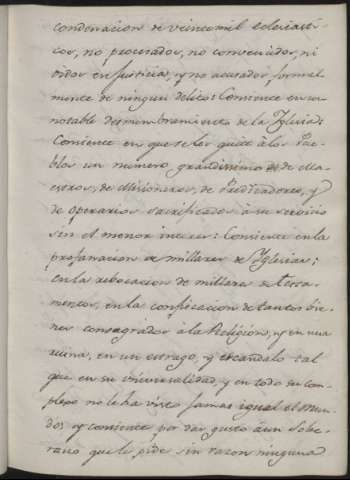 condenacion de veinte mil eclesiasti-
cos, no procesados, no convencidos, ni
oidos en Justicia, y no acusados formal
mente de ningun delito: Consiente en un
notable desmembramiento de la Yglesia:
Consiente en que se les quite à los Pue-
blos un numero grandissimo de Ma-
estros, de Misioneros, de Predicadores, y
de operarios sacrificados à su servicio
sin el menor interes: Consiente en la
profanacion de millares de Yglesias;
en la rebocacion de millares de testa-
mentos, en la confiscacion de tantos bie-
nes consagrados à la Religion, y en una
ruina, en un estrago, y escandalo tal
que en su universalidad, y en todo su com-
plexo no le ha visto jamas igual el Mun-
do; y consiente por dar gusto à un Sobe-
rano que lo pide sin razon ninguna